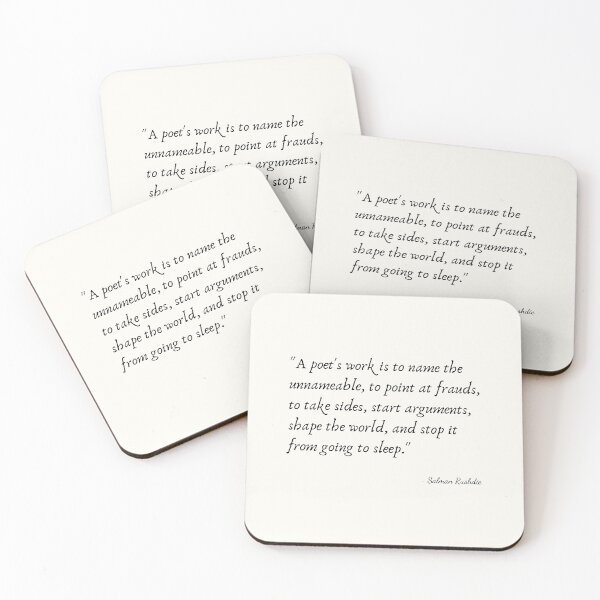 "A poet's work is to name the
unnameable, to point at frauds,
to take sides, start arguments,
sha and stop it
"A poet's work is to name the
unnameable, to point at frauds,
to take sides, start arguments,
shape the world, and stop it
from going to sleep."
"A poet's work is to name the
unnameable, to point at frauds,
to take sides, start arguments,
shape the world, and stop it
from going to sleep."
"A poet's work is to name the
unnameable, to point at frauds,
to take sides, start arguments,
shape the world, and stop it
from going to sleep."
- Salman Rushdie